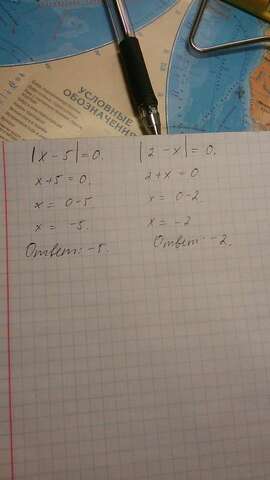 УСЛОВНЫЕ
ОБОЗНАЧЕНИЯ
|x-5|=0.
x+5=0.
x= 0-5
x= -5.
Ответ: -5.
|2-x|=0.
2+x=0
x= 0-2
x=-2
Ответ: -2.